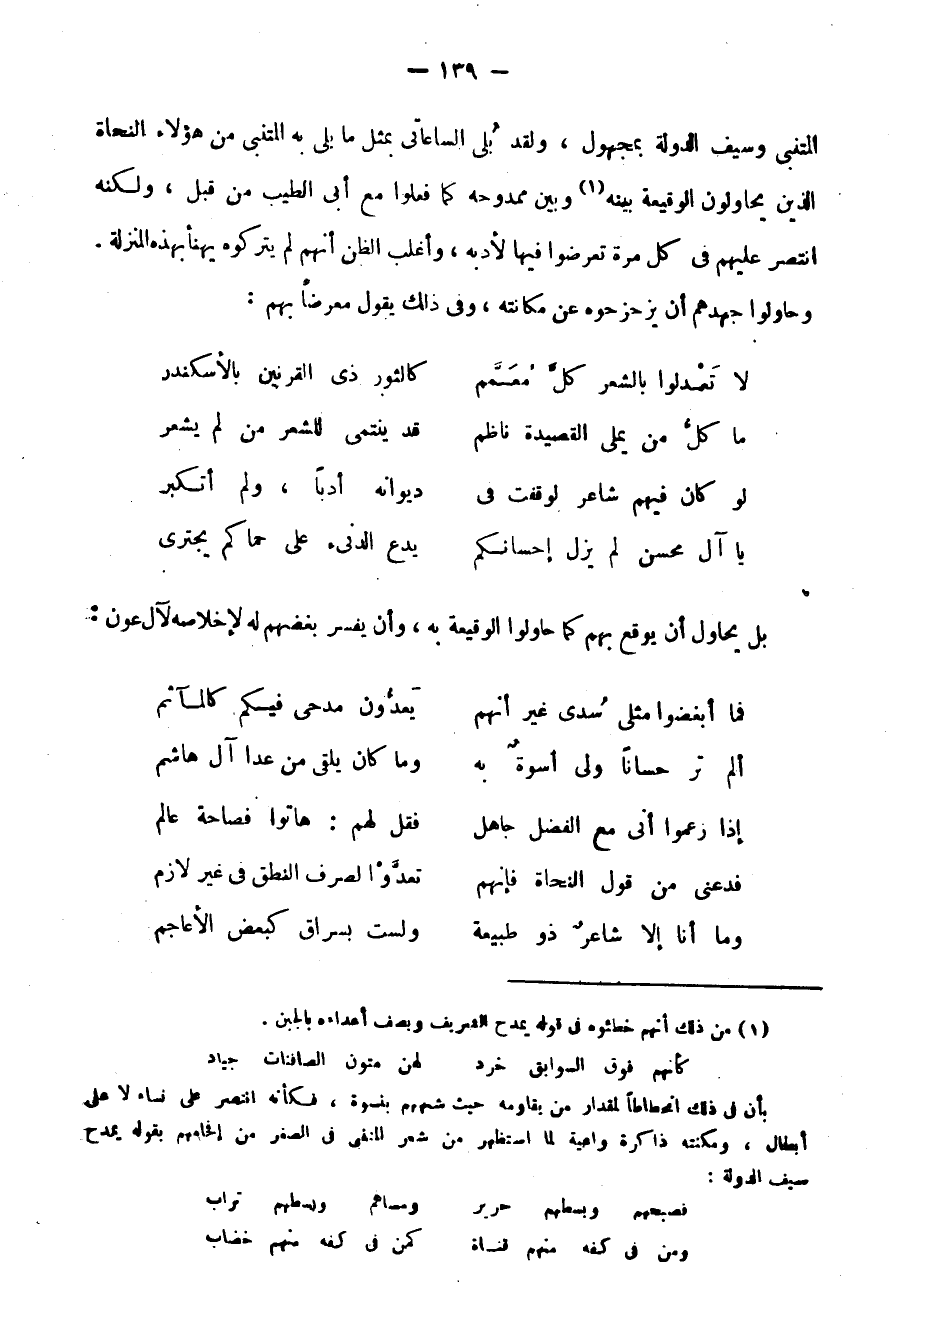 — ١٣٩ —
المتنبى وسيف الدولة بمجهول ، ولقد بُلى الساعاتى بمثل ما بلى به المتنبى من هؤلاء النحاة
الذين يحاولون الوقيعة بينه(١) وبين ممدوحه كما فعلوا مع أبى الطيب من قبل ، ولكنه
انتصر عليهم فى كل مرة تعرضوا فيها لأدبه ، وأغلب الظن أنهم لم يتركوه يهنأ بهذه المنزلة .
وحاولوا جهدهم أن يزحزحوه عن مكانته ، وفى ذلك يقول معرضاً بهم :
لا تَعْدلوا بالشعر كلَّ مُعَمَّم كالثور ذى القرنين بالأسكندر
ما كلُّ من يملى القصيدة ناظم قد ينتمى للشعر من لم يشعر
لو كان فيهم شاعر لوقفت فى ديوانه أدباً ، ولم أتكبر
يا آل محسن لم يزل إحسانكم يدع الدنىء على حماكم يجترى
بل يحاول أن يوقع بهم كما حاولوا الوقيعة به ، وأن يفسر بغضهم له لإخلاصه لآل عون :
فما أبغضوا مثلى سُدى غير أنهم يَعدُّون مدحى فيكم كالمآثم
ألم تر حساناً ولى أسوةٌ به وما كان يلقى من عدا آل هاشم
إذا زعموا أنى مع الفضل جاهل فقل لهم : هاتوا فصاحة عالم
فدعنى من قول النحاة فإنهم تعدَّوْا لصرف النطق فى غير لازم
وما أنا إلا شاعرٌ ذو طبيعة ولست بسراق كبعض الأعاجم
(١) من ذلك أنهم خطئوه فى قوله يمدح الشريف ويصف أعداءه بالجبن .
كأنهم فوق السوابق خرد لهن متون الصافنات جياد
بأن فى ذلك انحطاطاً لمقدار من يقاومه حيث شبههم بنسوة ، فكأنه انتصر على نساء لا على
أبطال ، ومكنته ذاكرة واعية لما استظهر من شعر المتنبى فى الصغر من إفحامهم بقوله يمدح
سيف الدولة :
فصبحهم وبسطهم حرير ومساهم وبسطهم تراب
ومن فى كفه منهم قناة كمن فى كفه منهم خضاب